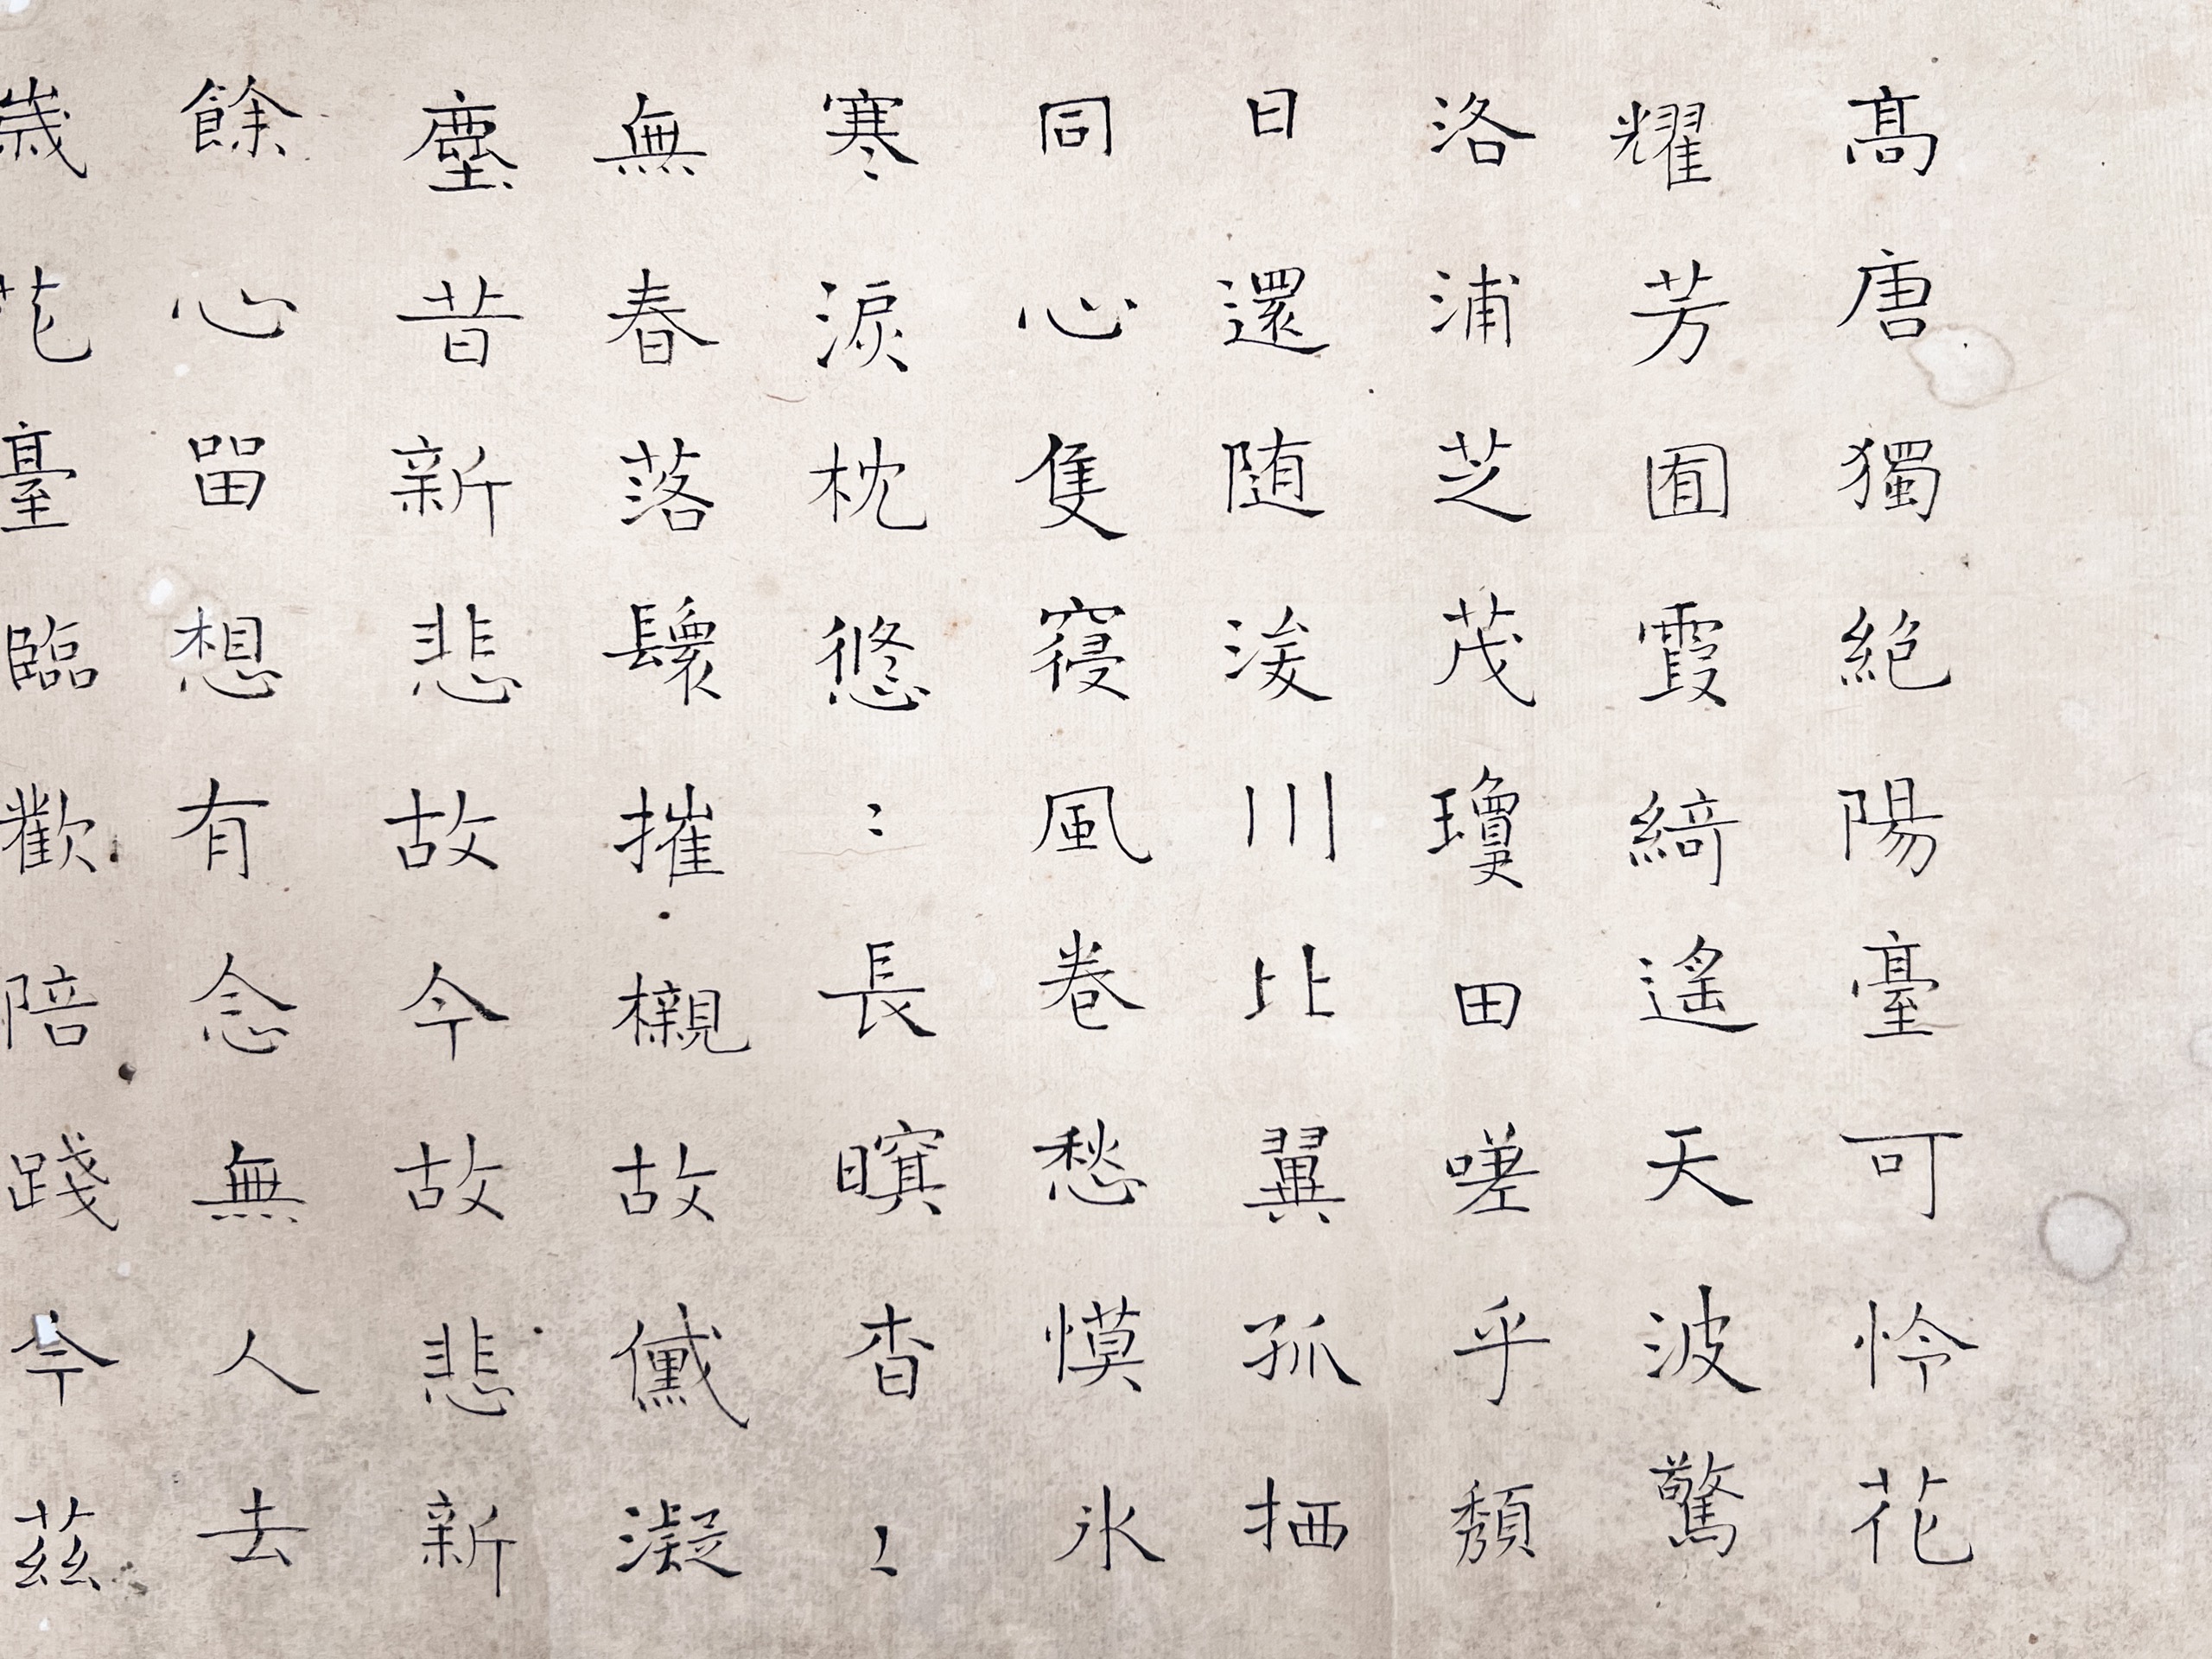 高唐獨絕陽臺可怜花
耀芳囿霞綺遙天波驚
洛浦芝茂瓊田嗟乎頹
日還随浚川比翼孤栖
同心隻寑風卷愁慔氷
寒淚枕悠〻長瞑杳〻
無春落鬟摧櫬故儀凝
塵昔新悲故今故悲新
餘心留想有念無人去
歲花臺臨歡陪踐今茲